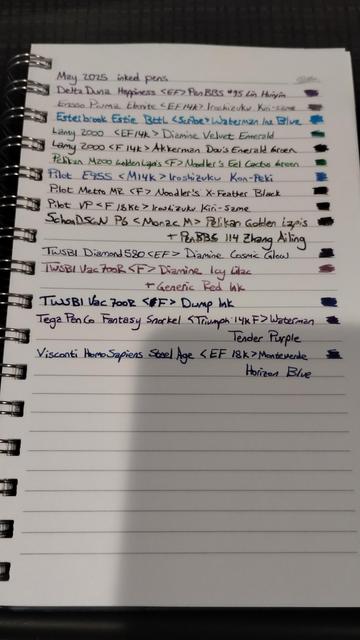 May 2025 inked pens
Delta Duna Happiness <EF> PenBBS #95 Lin Huiyin
Puma Ebonite <EF14K> Iroshizuku Kiri-same
Esterbrook Estie Bttl <Scribe> Waterman Ins Blue
Lamy 2000 <EF14K> Diamine Velvet Emerald
Lamy 2000 <F 14K> Akkerman Green
Pelikan M200 Golden Lapis <F> Noodler's Eel Cactus Green
Pilot E95S <M14K> Iroshizuku Kon-Peki
Pilot Metro MR <F> Noodler's X-Feather Black
Pilot VP <F 18K> Iroshizuku Kiri-Same
SchonDSGN P6 <Monoc M> Pelikan Golden Lapis
+ PenBBS 114 Zhang Ailing
TWSBI Diamond 580 <EF> Diamine Cosmic Glow
TWSBI Vac 700R <F> Diamine Icy Lilac
+ Generic Red Ink
TWSBI Vac 700R <F> Dump Ink
Tega Pen Co Fantasy Snorkel <Triumph 14K F> Waterman
Tender Purple
Visconti HomoSapiens Steel Age <EF 18K> Monteverde
Horizon Blue